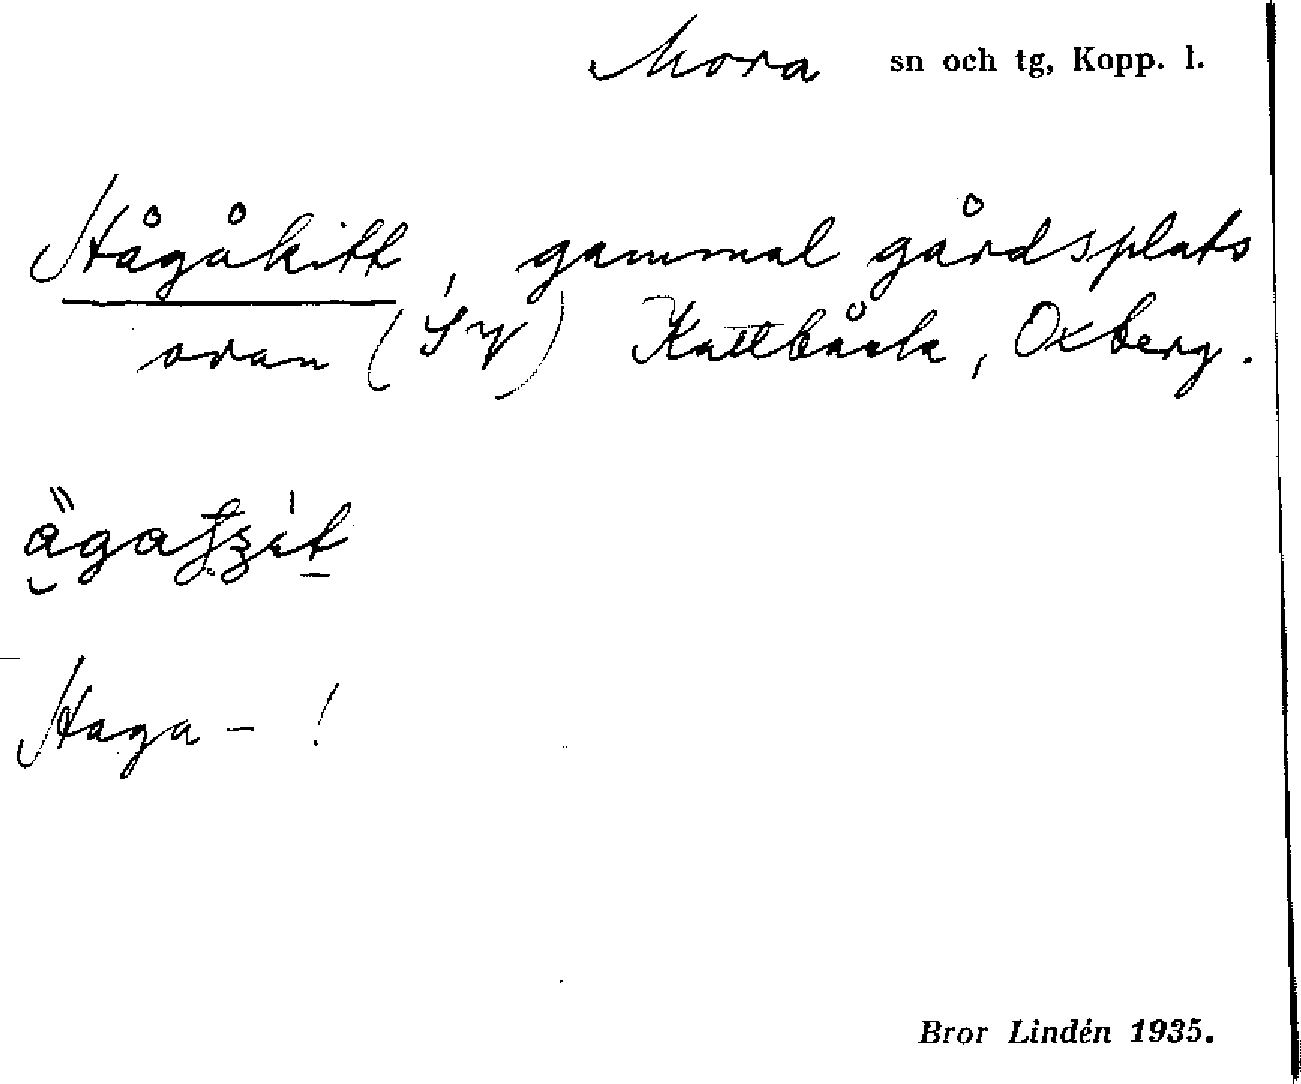 Mora sn och tg, Kopp. l.
Hågåkitt, gammal gårdsplats
ovan (Sv) Kattbäck, Oxberg.
Haga- !
Bror Lindén 1935.